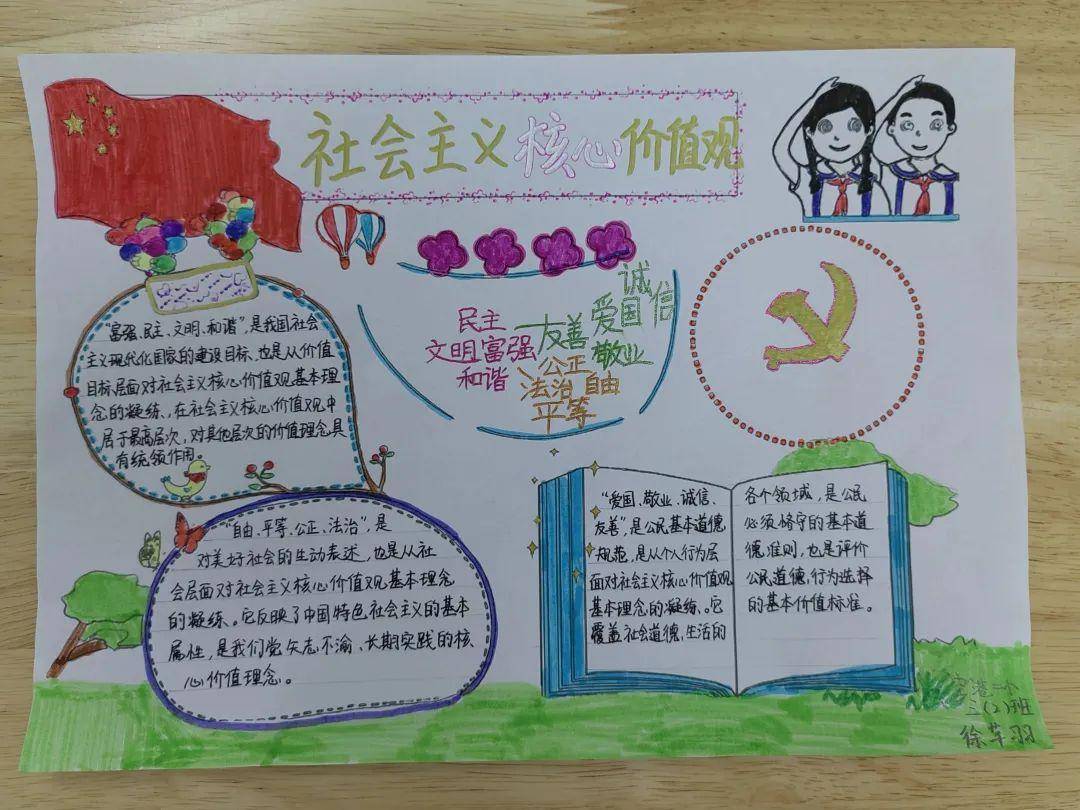 社会主义核心价值观
"富强、民主、文明、和谐",是我国社会
主义现代化国家的建设目标、也是从价值
目标层面对社会主义核心价值观基本理
念的凝练、在社会主义核心价值观中
居于最高层次,对其他层次的价值理念具
有统领作用。
诚
爱国 信
友善
敬业
民主
文明 富强
和谐
公正
法治 自由
平等
"自由、平等、公正、法治",是
对美好社会的生动表述,也是从社
会层面对社会主义核心价值观基本理念
的凝练、。它反映了中国特色社会主义的基本
属性,是我们党矢志不渝、长期实践的核
心价值理念。
"爱国、敬业、诚信、
友善",是公民基本道德
规范,是从个人行为层
面对社会主义核心价值观
基本理念的凝练、。它
覆盖社会道德,生活的
各个领域,是公民
必须恪守的基本道
德准则,也是评价
公民道德,行为选择
的基本价值标准。
三(2)班